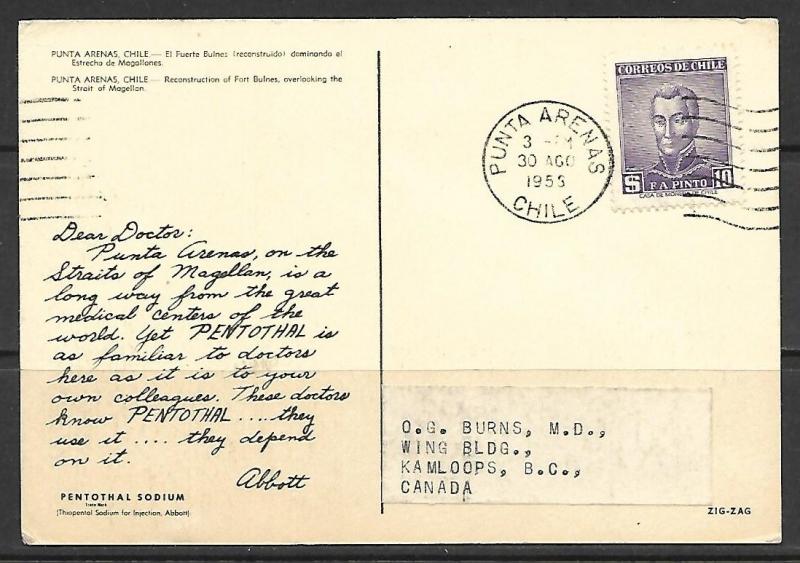 PUNTA ARENAS, CHILE — El Fuerte Bulnes (reconstruido) dominando el
Estrecho de Magallanes.
PUNTA ARENAS, CHILE — Reconstruction of Fort Bulnes, overlooking the
Strait of Magellan.
CORREOS DE CHILE
F. A. PINTO
$ 10
CASA DE MONEDA DE CHILE
PUNTA ARENAS
30 AGO
CHILE
Dear Doctor:
Punta Arenas, on the
Straits of Magellan, is a
long way from the great
medical centers of the
world. Yet PENTOTHAL is
as familiar to doctors
here as it is to your
own colleagues. These doctors
know PENTOTHAL .... they
use it .... they depend
on it.
Abbott
PENTOTHAL SODIUM
Trade Mark
(Thiopental Sodium for Injection, Abbott)
O.G. BURNS, M.D.,
WING BLDG.,
KAMLOOPS, B.C.,
CANADA
ZIG-ZAG